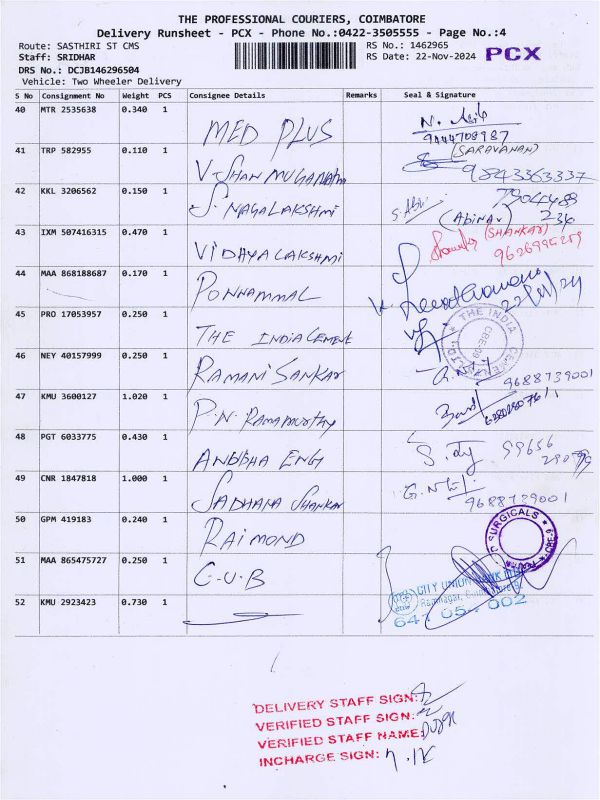 THE PROFESSIONAL COURIERS, COIMBATORE
Delivery Runsheet - PCX - Phone No.:0422-3505555 - Page No.:4
Route: SASTHIRI ST CMS
RS No.: 1462965
Staff: SRIDHAR
RS Date: 22-Nov-2024 PCX
DRS No.: DCJB146296504
Vehicle: Two Wheeler Delivery
S No Consignment No Weight PCS Consignee Details Remarks Seal & Signature
40 MTR 2535638 0.340 1 MED PLUS
9444708987
41 TRP 582955 0.110 1 V. SHANMUGANATHAN (SARAVANAN)
9843363337
42 KKL 3206562 0.150 1 S. NAGALAKSHMI S. Abi
(Abinav) 236
43 IXM 507416315 0.470 1 VIDHYALAKSHMI (SHANKAR)
44 MAA 868188687 0.170 1 PONNAMMAL
45 PRO 17053957 0.250 1 THE INDIA CEMENT THE INDIA CEMENTS LTD.
46 NEY 40157999 0.250 1 RAMANI SANKAR
9688739001
47 KMU 3600127 1.020 1 P.N. Ramamurthy
48 PGT 6033775 0.430 1 ANUBHA ENG
99656
49 CNR 1847818 1.000 1 SADHANA SHANKAR
9688739001
50 GPM 419183 0.240 1 RAIMOND SURGICALS
51 MAA 865475727 0.250 1 C.U.B CITY UNION BANK LTD
Ramnagar, Coimbatore
641 05 002
52 KMU 2923423 0.730 1
DELIVERY STAFF SIGN:
VERIFIED STAFF SIGN:
VERIFIED STAFF NAME:
INCHARGE SIGN: